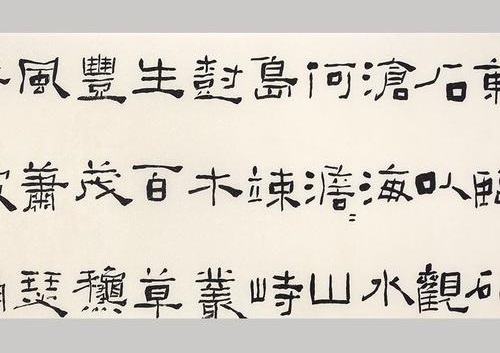 東臨碣
石以觀
滄海水
河澹゠山
島竦峙
尌木叢
生百草
豐茂龝
風蕭瑟